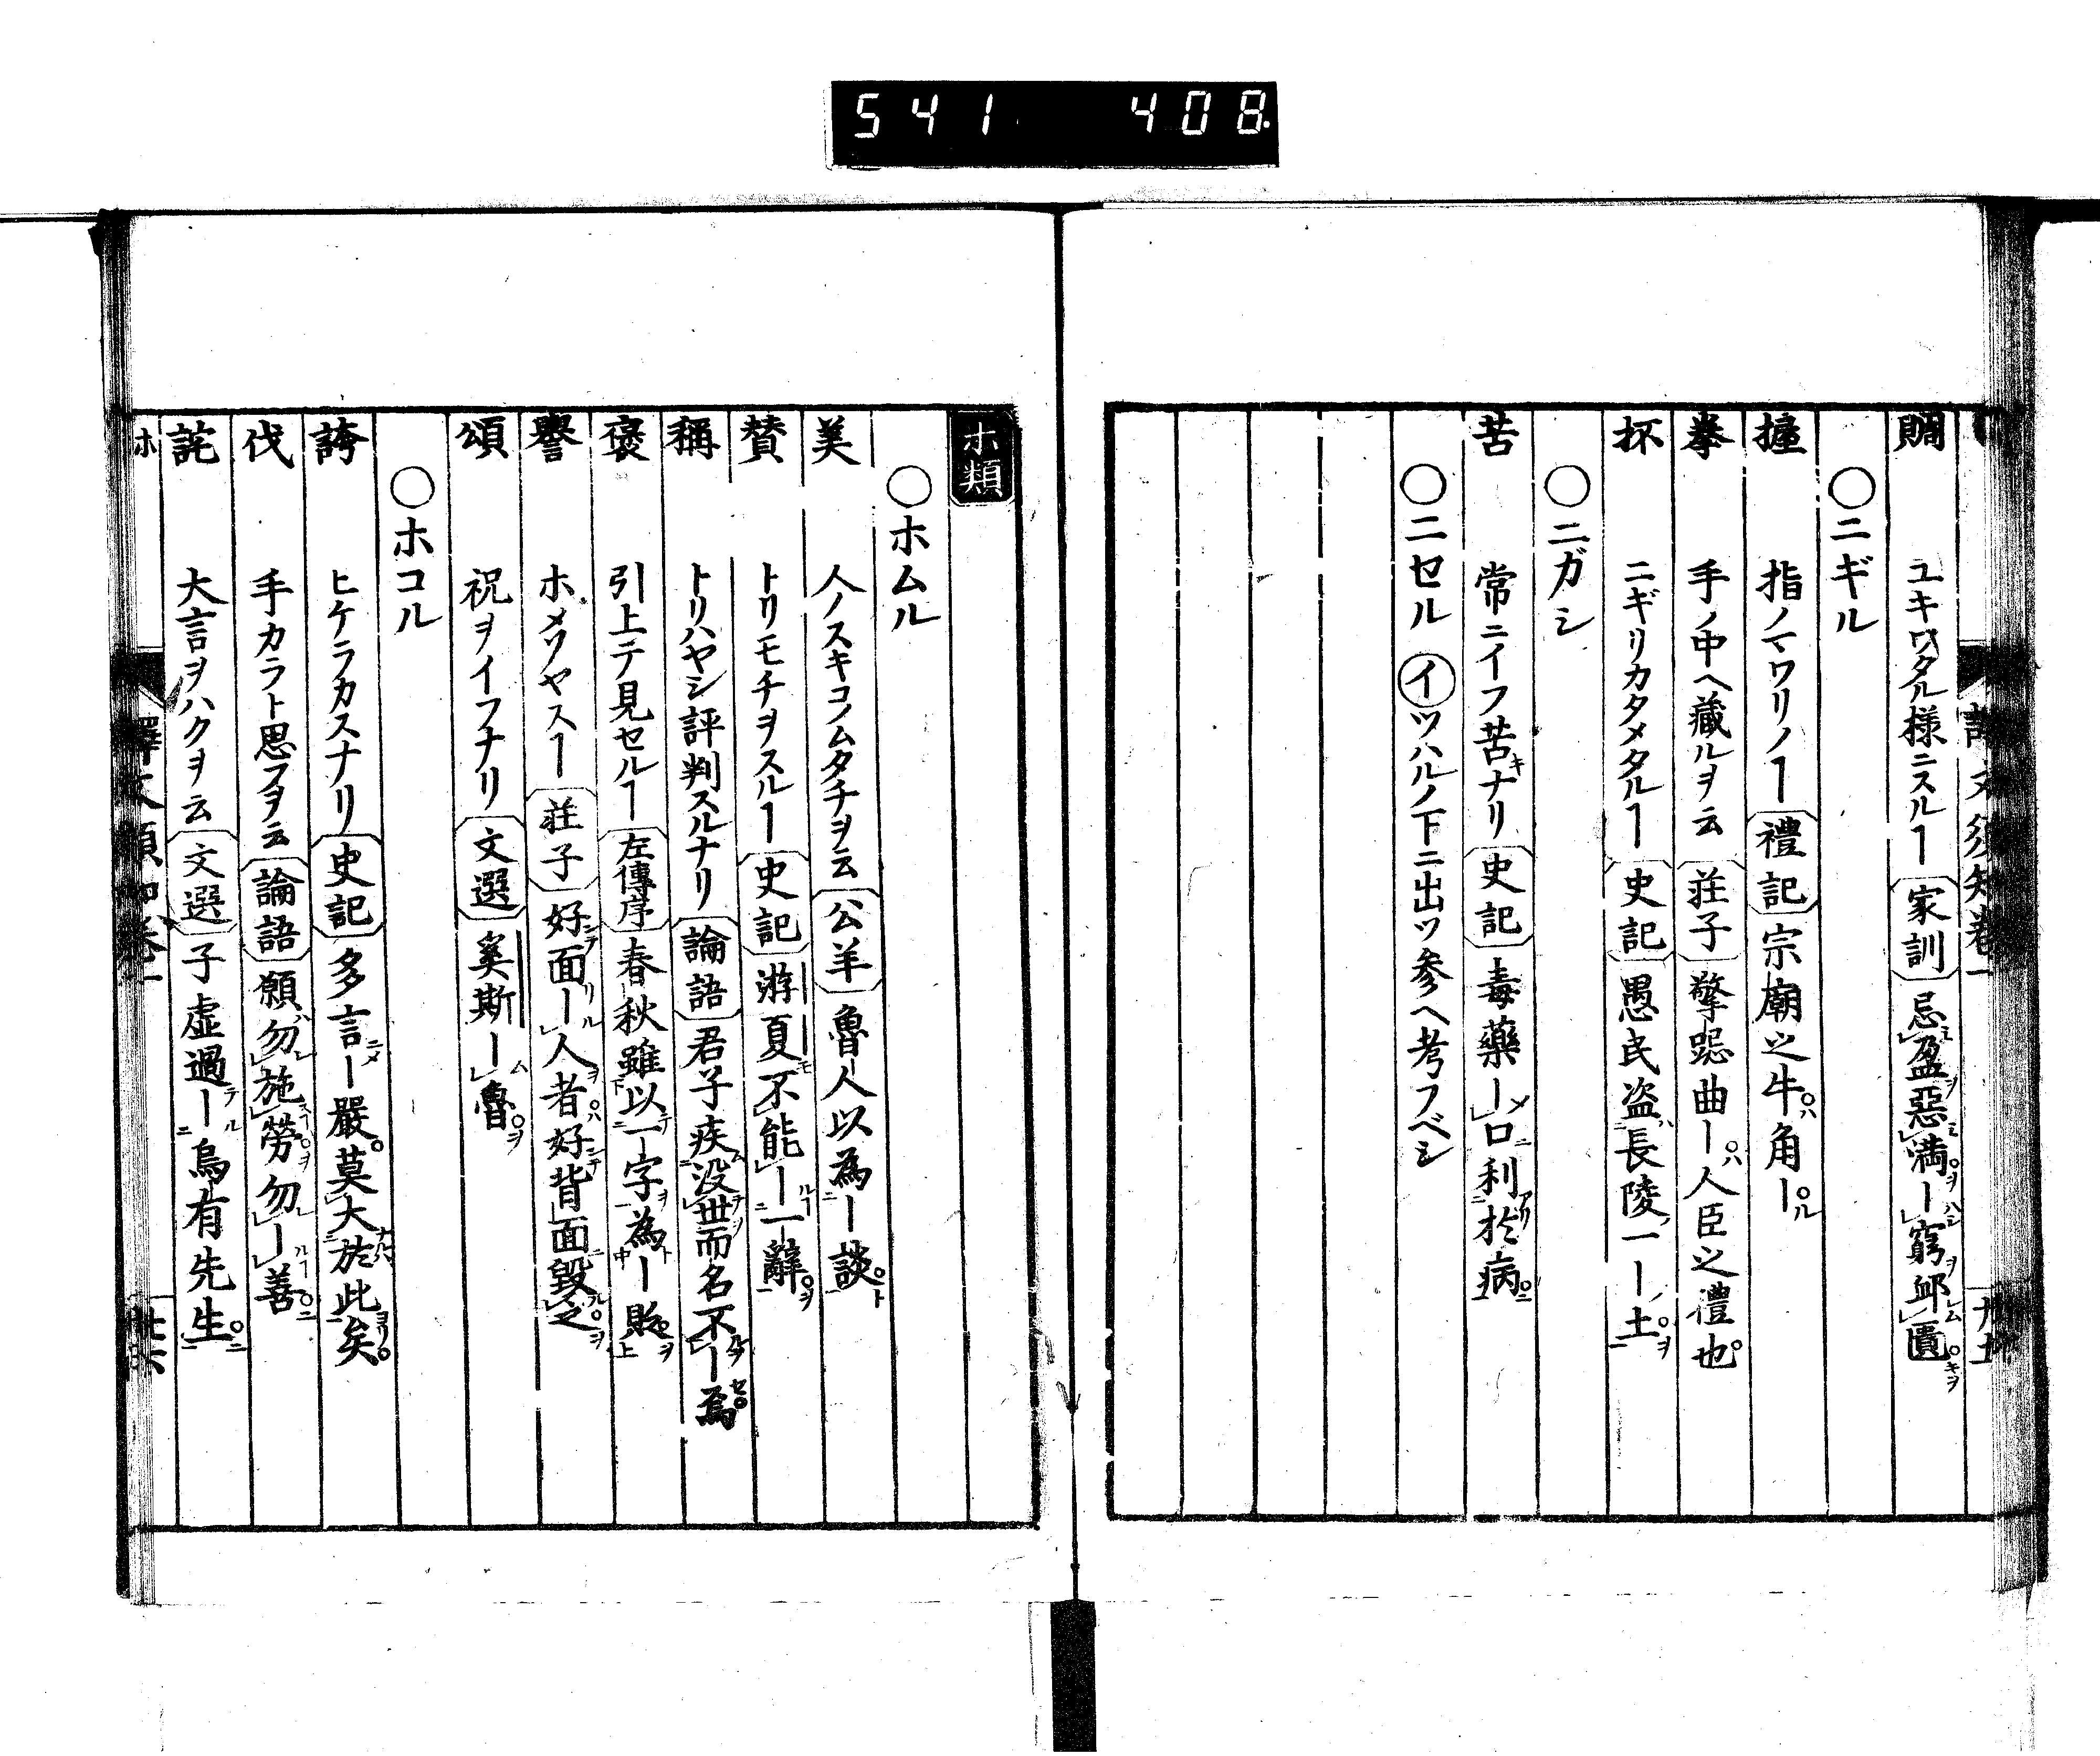 541 408
賙 ユキワタル様ニスルヿ 家訓 忌盈惡満ー窮邺匱
○ニギル
握 指ノマワリノヿ 禮記 宗廟之牛角ー
拳 手ノ中ヘ藏ルヲ云 荘子 擎跽曲ー人臣之禮也
抔 ニギリカタメタルヿ 史記 愚民盗長陵一ー土
○ニガシ
苦 常ニイフ苦キナリ 史記 毒藥ー口利於病
○ニセル イ ツハルノ下ニ出ツ参ヘ考フベシ
ホ類
○ホムル
美 人ノスキコノムタチヲ云 公羊 魯人以為ー談
賛 トリモチヲスルヿ 史記 游夏不能ー一辭
稱 トリハヤシ評判スルナリ 論語 君子疾没世而名不ー焉
褒 引上テ見セルヿ 左傳序 春秋雖以一字為ー貶
譽 ホメソヤスヿ 荘子 好面ー人者好背面毀之
頌 祝ヲイフナリ 文選 奚斯ー魯
○ホコル
誇 ヒケラカスナリ 史記 多言ー嚴莫大於此矣
伐 手カラト思フヲ云 論語 願勿施勞勿ー善
詫 大言ヲハクヲ云 文選 子虚過ー烏有先生
ホ 譯文須知卷一